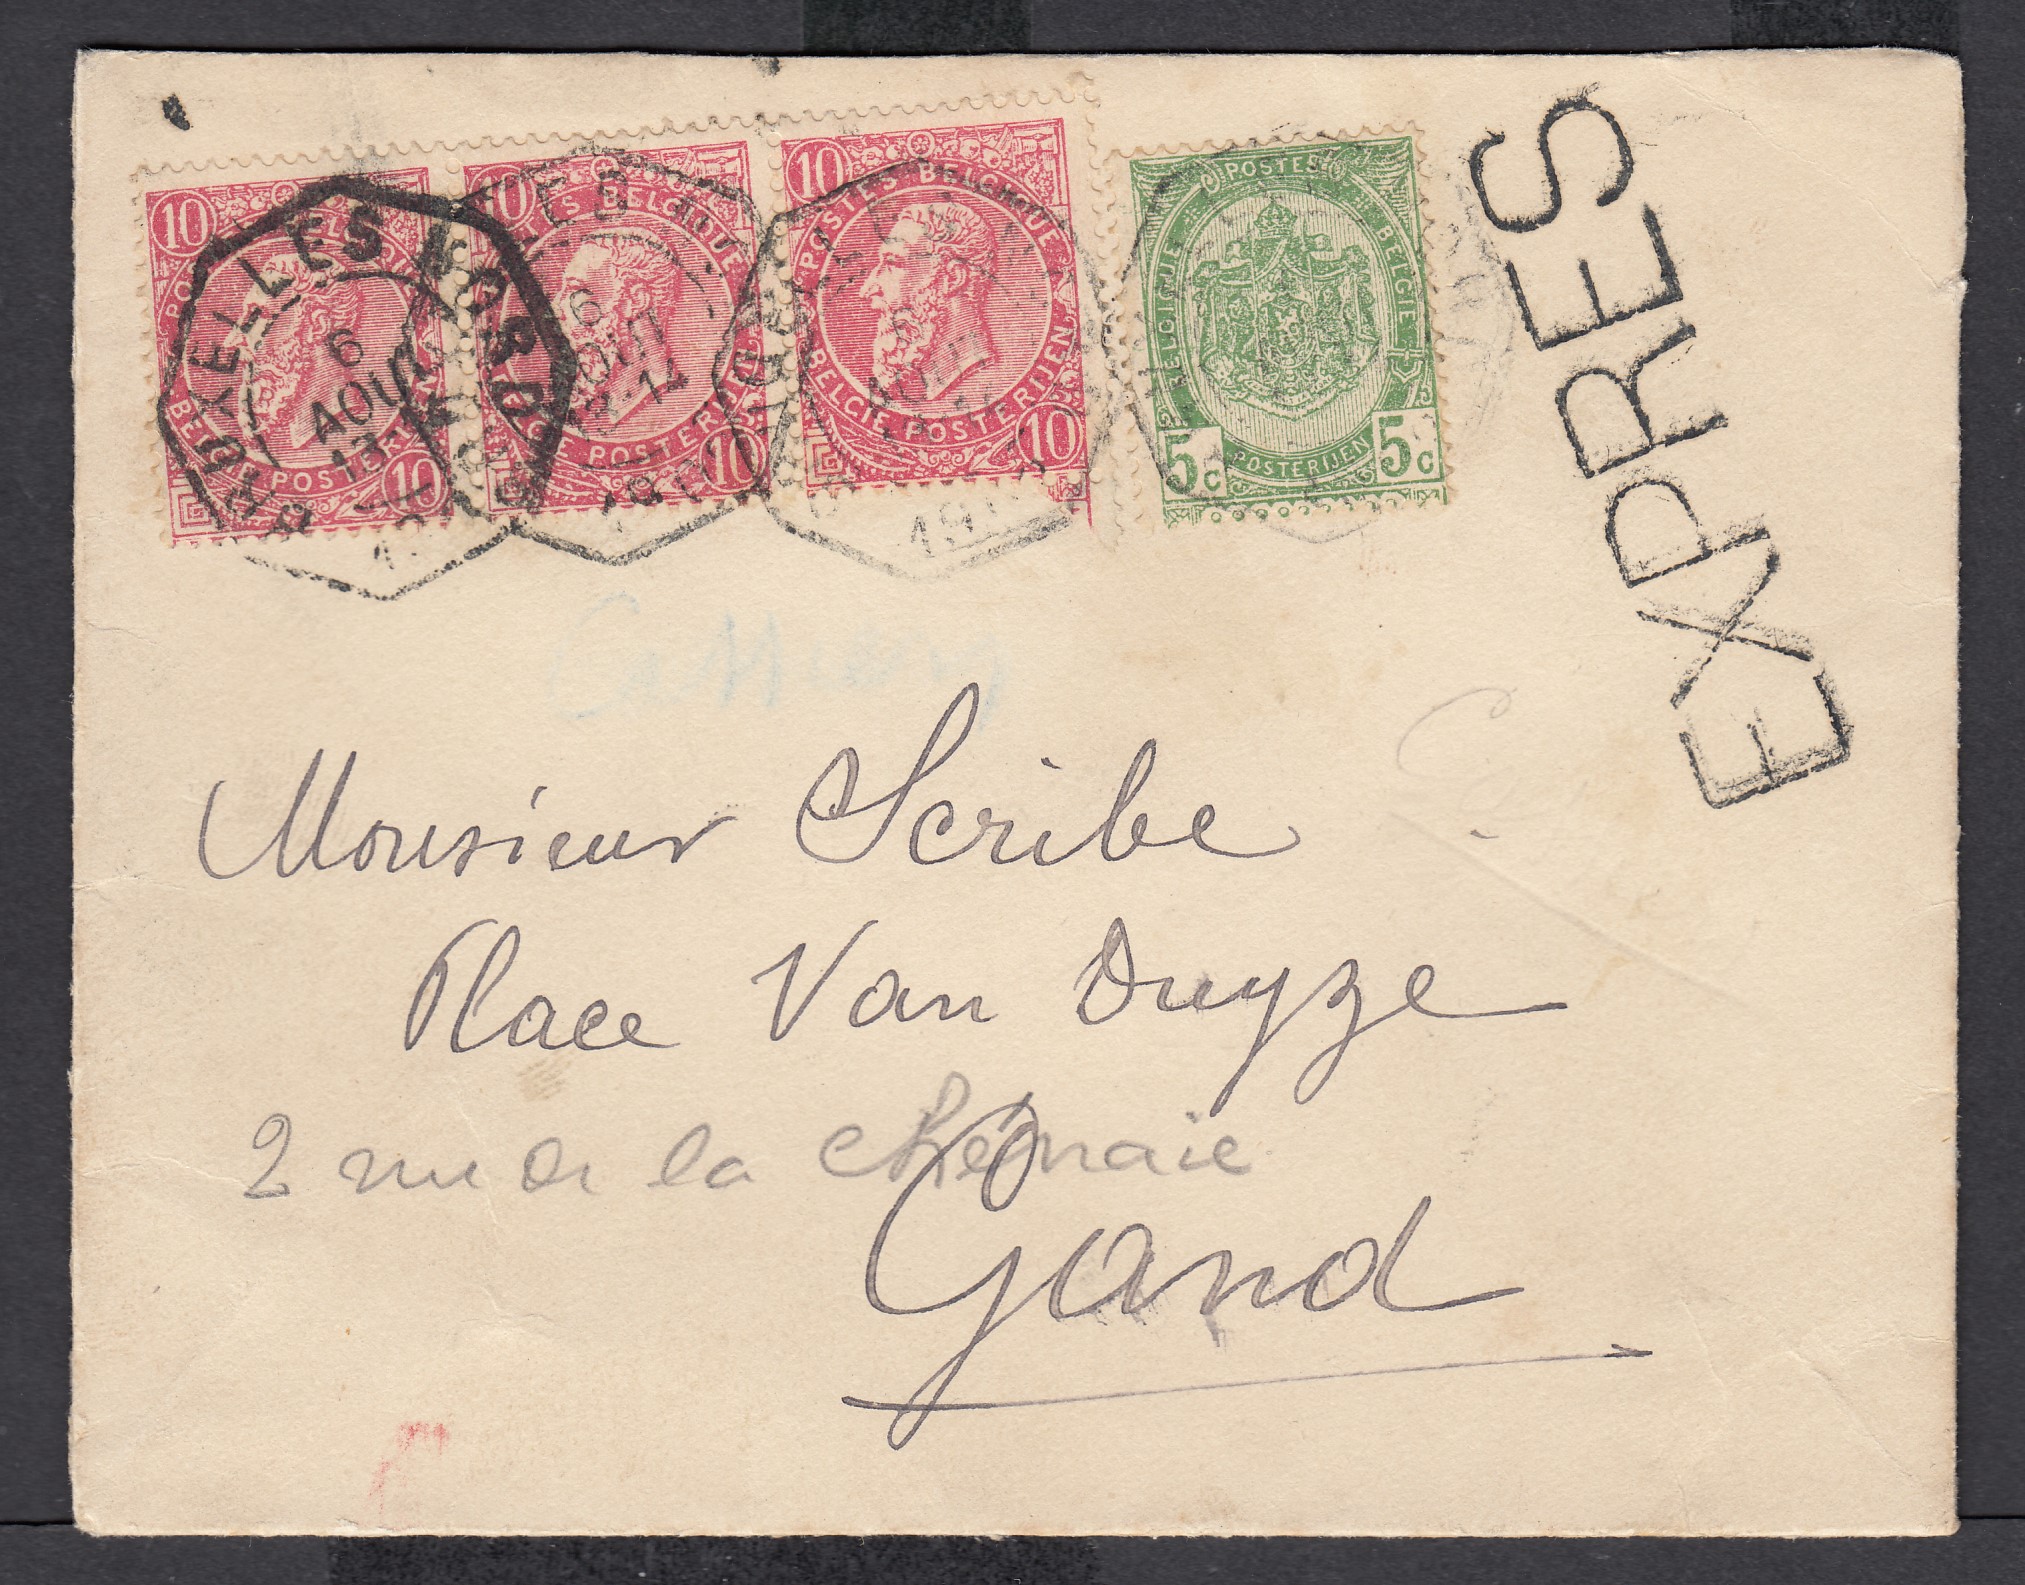 10 POSTES BELGIQUE
BELGIE POSTERIJEN 10
10 POSTES BELGIQUE
BELGIE POSTERIJEN 10
10 POSTES BELGIQUE
BELGIE POSTERIJEN 10
POSTES
BELGIQUE BELGIE
5c POSTERIJEN 5c
BRUXELLES
6
AOUT
6
AOUT
6
AOUT
EXPRES
Monsieur Scribe
Place Van Duyze
2 rue de la chênaie
Gand